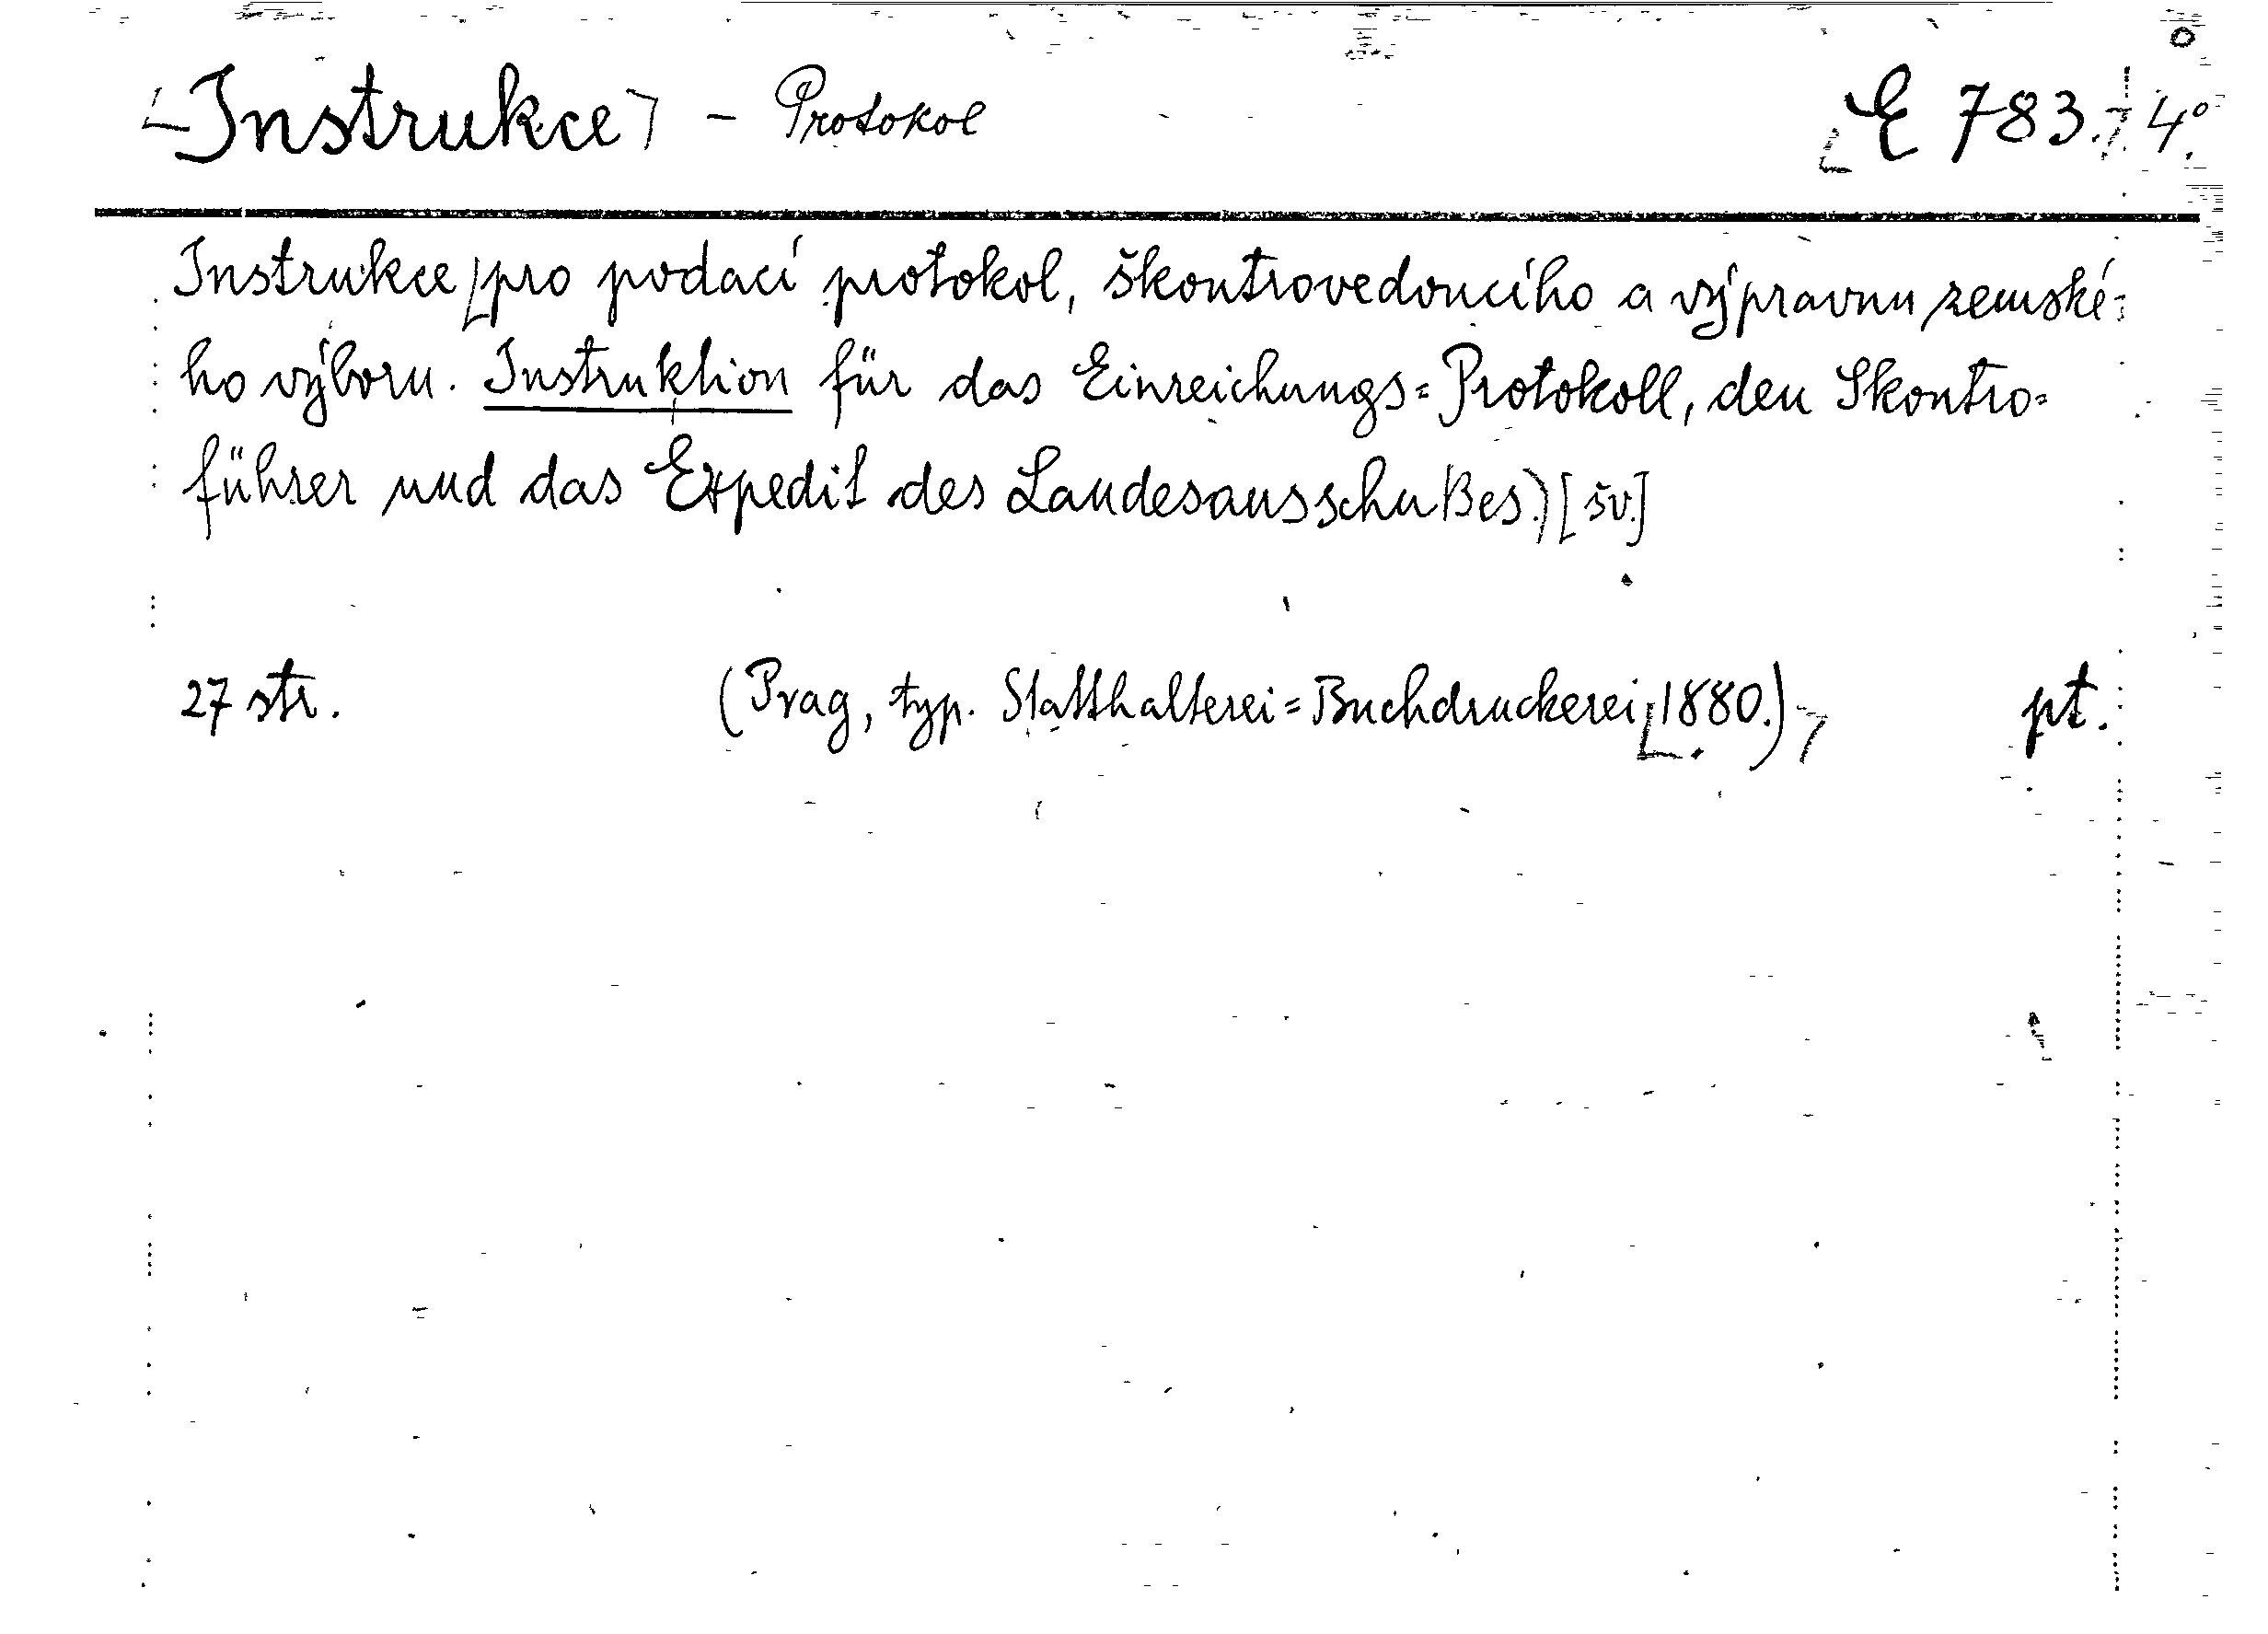 Instrukce - Protokol
E 783. 4°.
Instrukce pro podací protokol, škontrovedoucího a výpravnu zemské-
ho výboru. Instruktion für das Einreichungs=Protokoll, den Skontro=
führer und das Expedit des Landesausschußes.) [šv.]
27 str. (Prag, typ. Statthalterei=Buchdruckerei, 1880.) pt.